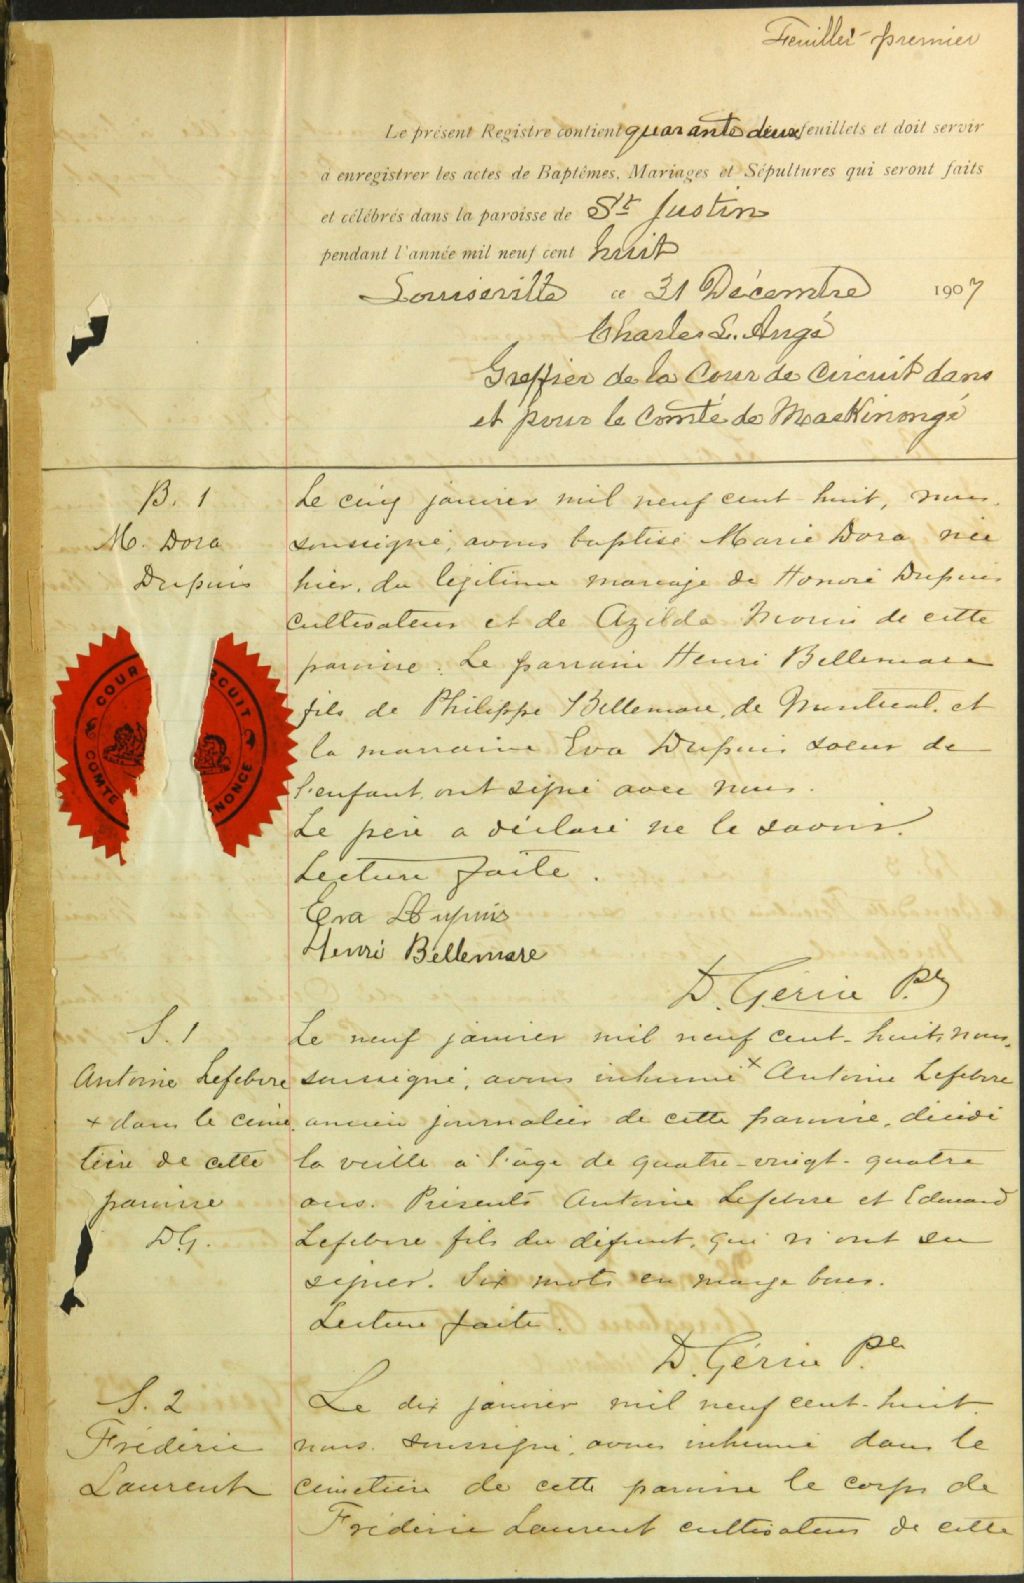 Feuillet premier
Le présent Registre contient quarante deux feuillets et doit servir
à enregistrer les actes de Baptêmes, Mariages et Sépultures qui seront faits
et célébrés dans la paroisse de St Justin
pendant l'année mil neuf cent huit
Louiseville ce 31 Décembre 1907
Charles L. Angé
Greffier de la Cour de Circuit dans
et pour le Comté de Maskinongé
B. 1
M. Dora
Dupuis
Le cinq janvier mil neuf cent-huit, nous
soussigné, avons baptisé Marie Dora née
hier, du légitime mariage de Honoré Dupuis
cultivateur et de Azilda Morin de cette
paroisse. Le parrain Henri Bellemare
fils de Philippe Bellemare, de Montréal, et
la marraine Eva Dupuis soeur de
l'enfant, ont signé avec nous.
Le père a déclaré ne le savoir.
Lecture faite.
Eva Dupuis
Henri Bellemare
D. Gérin Ptre
COUR
RCUIT
COMTÉ
NONGÉ
S. 1
Antoine Lefebvre
+ dans le cime
tière de cette
paroisse
D.G.
Le neuf janvier mil neuf cent-huit, nous,
soussigné, avons inhumé + Antoine Lefebvre
ancien journalier de cette paroisse, décédé
la veille à l'âge de quatre-vingt-quatre
ans. Présents Antoine Lefebvre et Edouard
Lefebvre fils du défunt, qui n'ont su
signer. Six mots en marge bons.
Lecture faite.
D. Gérin Ptre
S. 2
Fréderic
Laurent
Le dix janvier mil neuf cent-huit
nous soussigné, avons inhumé dans le
cimetière de cette paroisse le corps de
Fréderic Laurent cultivateur de cette